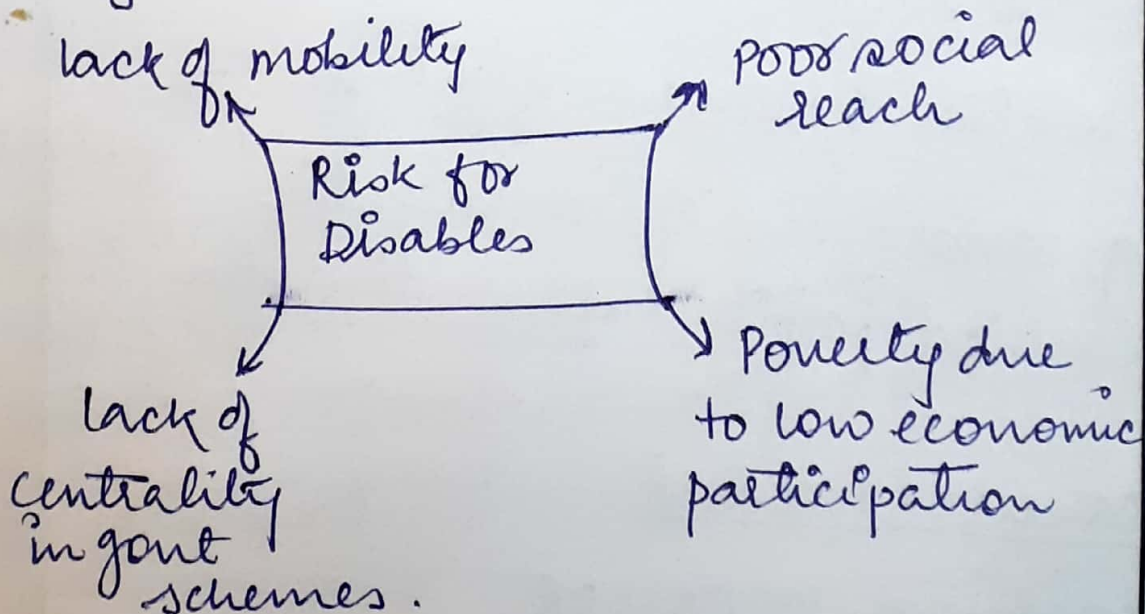 lack of mobility
Poor social
reach
Risk for
Disables
lack of
centrality
in govt
schemes.
Poverty due
to low economic
participation